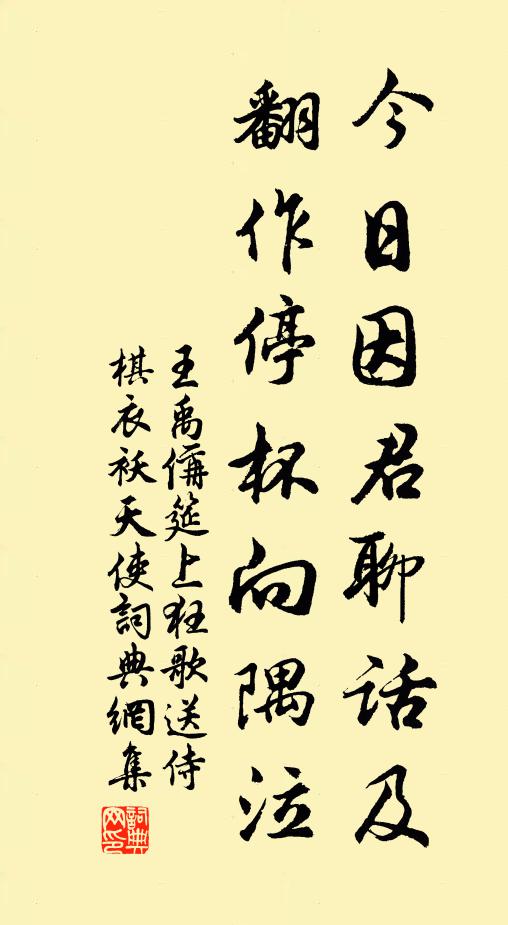 今日因君聊話及
翻作停杯向隅泣
王禹偁筵上狂歌送侍
棋衣袄天使詞典網集
詞典
网印